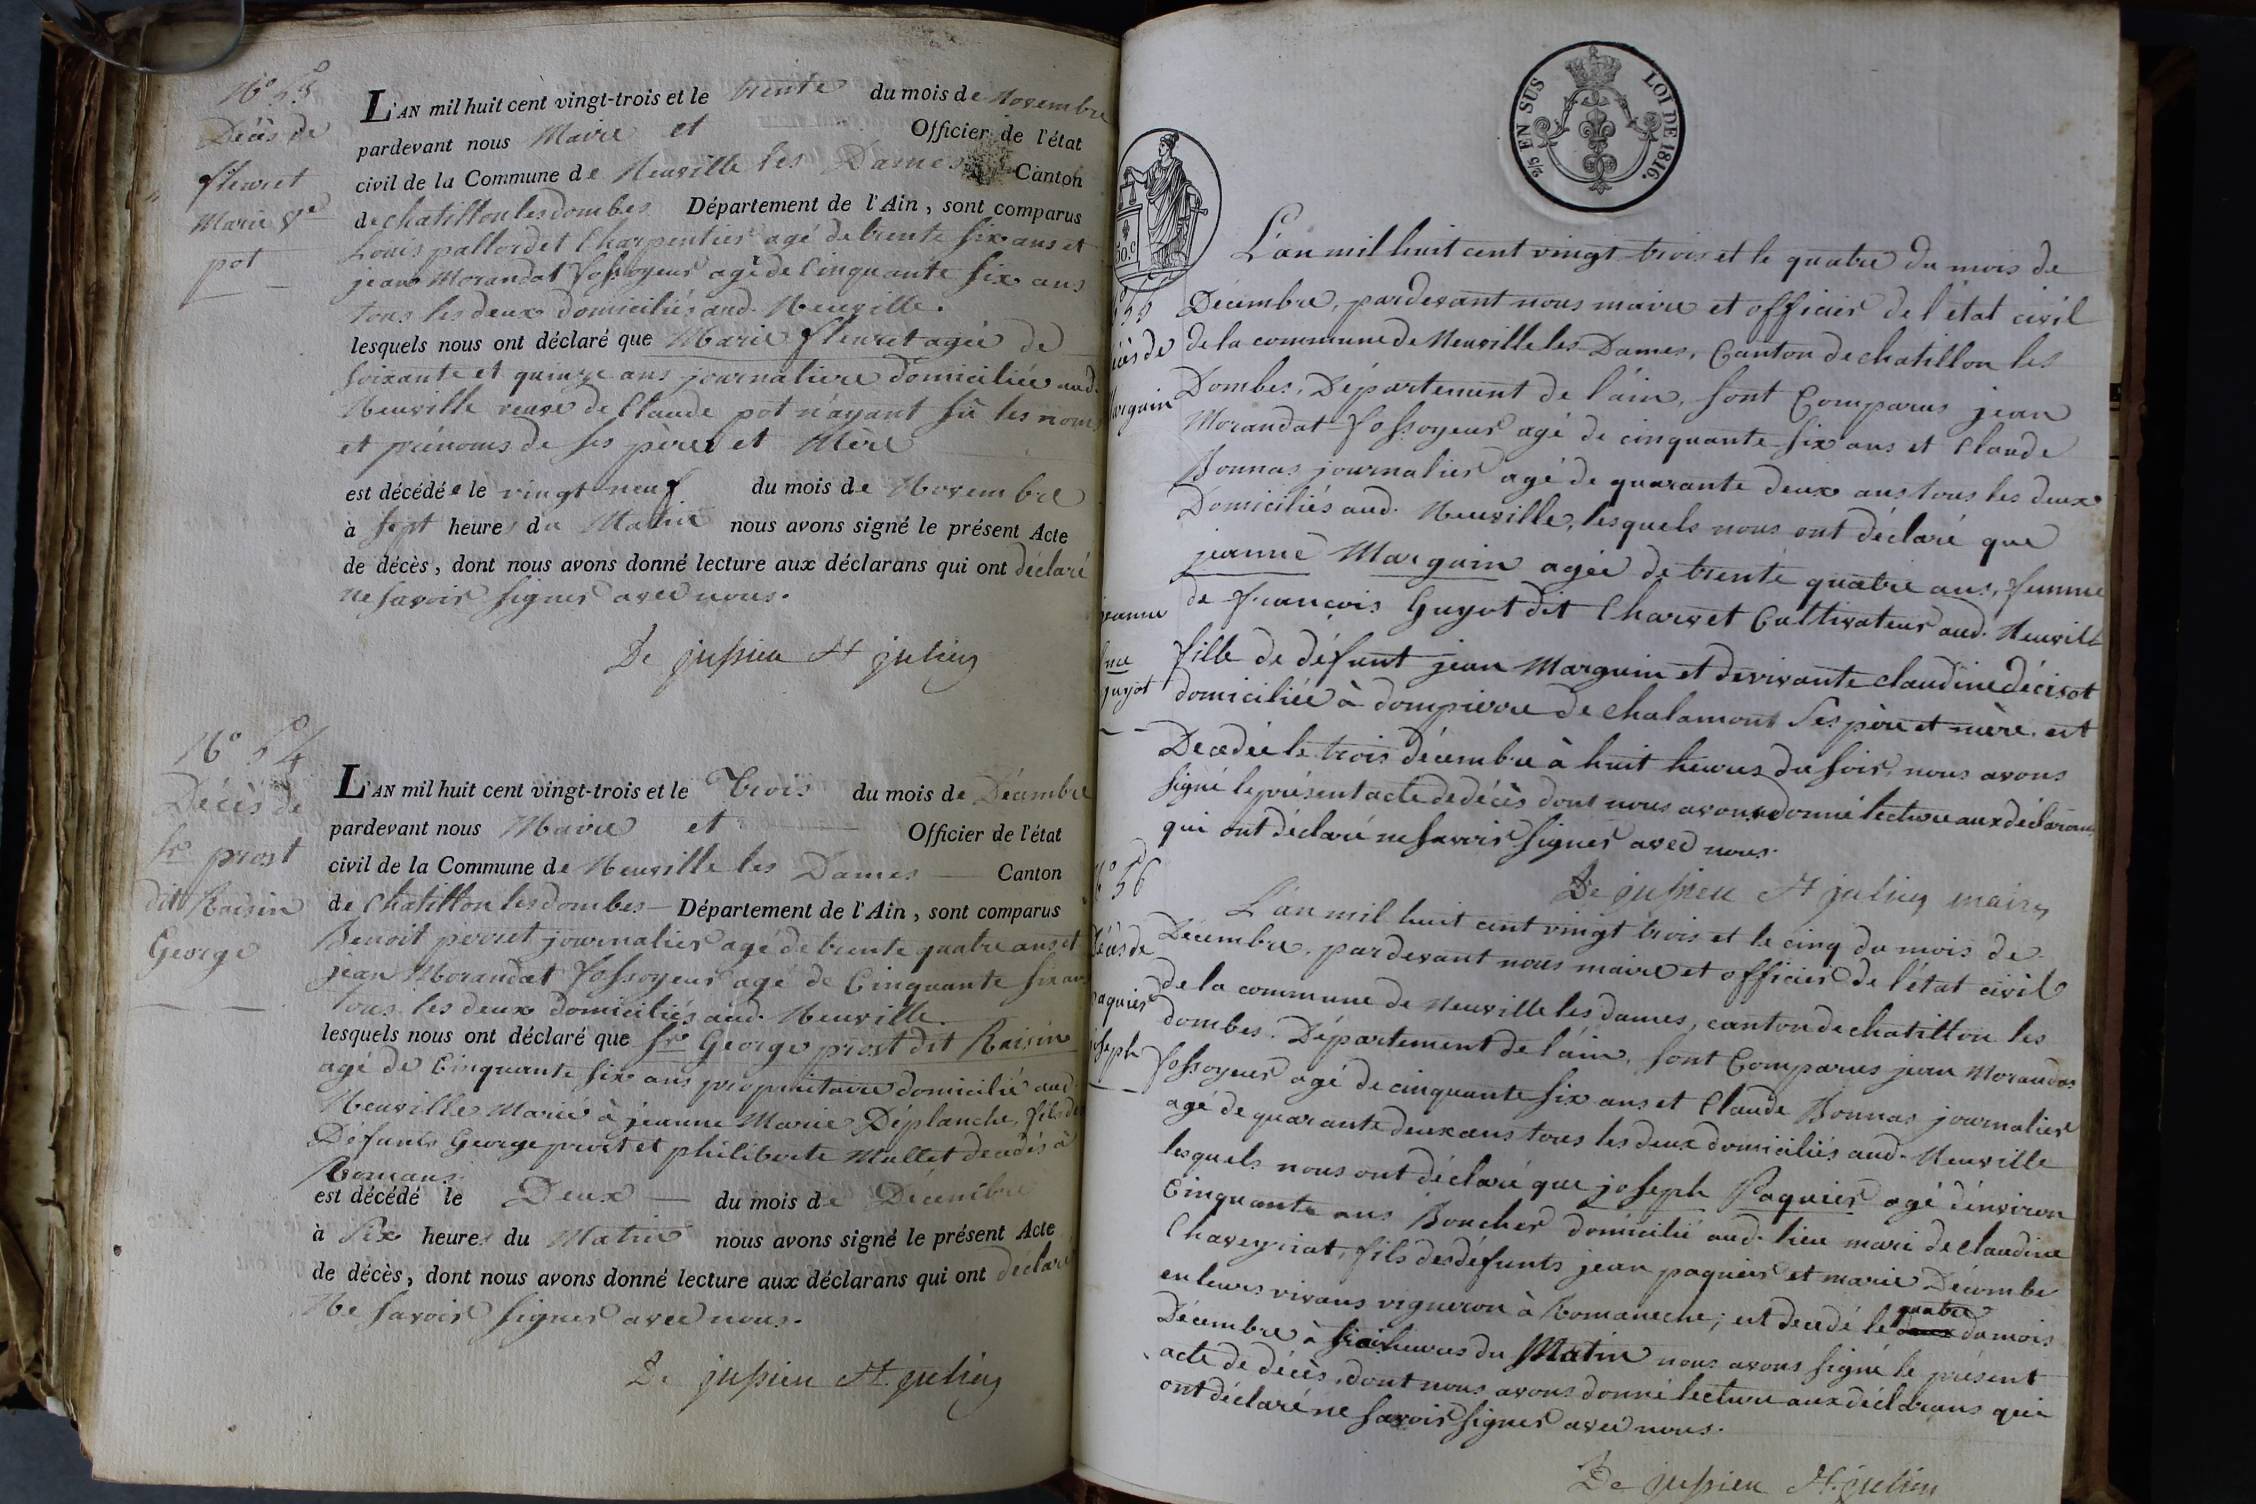 N° 53
Décès de
fleuret
Marie Ve
pot
L'AN mil huit cent vingt-trois et le trente du mois de Novembre
pardevant nous Maire et Officier de l'état
civil de la Commune de Neuville les Dames Canton
de chatillon les dombes Département de l'Ain, sont comparus
Louis pallordet Charpentier agé de trente six ans et
jean Morandat fossoyeur agé de Cinquante six ans
tous les deux domiciliés aud. Neuville.
lesquels nous ont déclaré que Marie fleuret agée de
soixante et quinze ans journaliere domiciliée aud.
Neuville veuve de Claude pot n'ayant sù les noms
et prénoms de ses père et Mère
est décédée le vingt neuf du mois de Novembre
à sept heures du Matin nous avons signé le présent Acte
de décès, dont nous avons donné lecture aux déclarans qui ont déclaré
ne savoir signer avec nous.
De jussieu St julien
N° 54
Décès de
sr prost
dit Raisin
George
L'AN mil huit cent vingt-trois et le Trois du mois de Décembre
pardevant nous Maire et Officier de l'état
civil de la Commune de Neuville les Dames Canton
de Chatillon les dombes Département de l'Ain, sont comparus
Benoit perret journalier agé de trente quatre ans et
jean Morandat fossoyeur agé de Cinquante six ans
tous les deux domiciliés aud. Neuville.
lesquels nous ont déclaré que sr George prost dit Raisin
agé de Cinquante six ans propriétaire domicilié aud.
Neuville Marié à jeanne Marie Déplanche, fils de
Défunts George prost et philiberte Mallet décédés à
Romans.
est décédé le Deux du mois de Décembre
à Six heures du Matin nous avons signé le présent Acte
de décès, dont nous avons donné lecture aux déclarans qui ont déclaré
Ne savoir signer avec nous.
De jussieu St. julien
2/5 EN SUS LOI DE 1816.
50.c
55
de
Marguin
jeanne
fme
guyot
L'an mil huit cent vingt trois et le quatre du mois de
Décembre, pardevant nous maire et officier de l'état civil
de la commune de Neuville les Dames, Canton de chatillon les
Dombes, Département de l'ain, sont Comparus jean
Morandat fossoyeur agé de cinquante six ans et Claude
Bonnas journalier agé de quarante deux ans tous les deux
Domiciliés aud. Neuville, lesquels nous ont déclaré que
jeanne Marguin agée de trente quatre ans, femme
de françois Guyot dit Charvet Cultivateur aud. Neuville
fille de défunt jean Marguin et de vivante claudine décisat
domiciliée à dompierre de chalamont ses père et mère, est
Decedée le trois décembre à huit heures du soir, nous avons
signé le présent acte de décès dont nous avons donné lecture aux déclarans
qui ont déclaré ne savoir signer avec nous.
De jussieu St julien maire
N° 56
Décès de
paquier
joseph
L'an mil huit cent vingt trois et le cinq du mois de
Décembre, pardevant nous maire et officier de l'état civil
de la commune de Neuville les dames, canton de chatillon les
dombes, Département de l'ain, sont Comparus jean Morandat
fossoyeur agé de cinquante six ans et Claude Bonnas journalier
agé de quarante deux ans tous les deux domiciliés aud. Neuville
lesquels nous ont déclaré que joseph Paquier agé d'environ
Cinquante ans Boucher domicilié aud. lieu mari de claudine
Chaveyriat, fils des défunts jean paquier et marie Décombe
en leurs vivans vigneron à Romaneche; est decedé le quatre du mois
Décembre à six heures du Matin nous avons signé le présent
acte de décès, dont nous avons donné lecture aux déclarans qui
ont déclaré ne savoir signer avec nous.
De jussieu St. julien